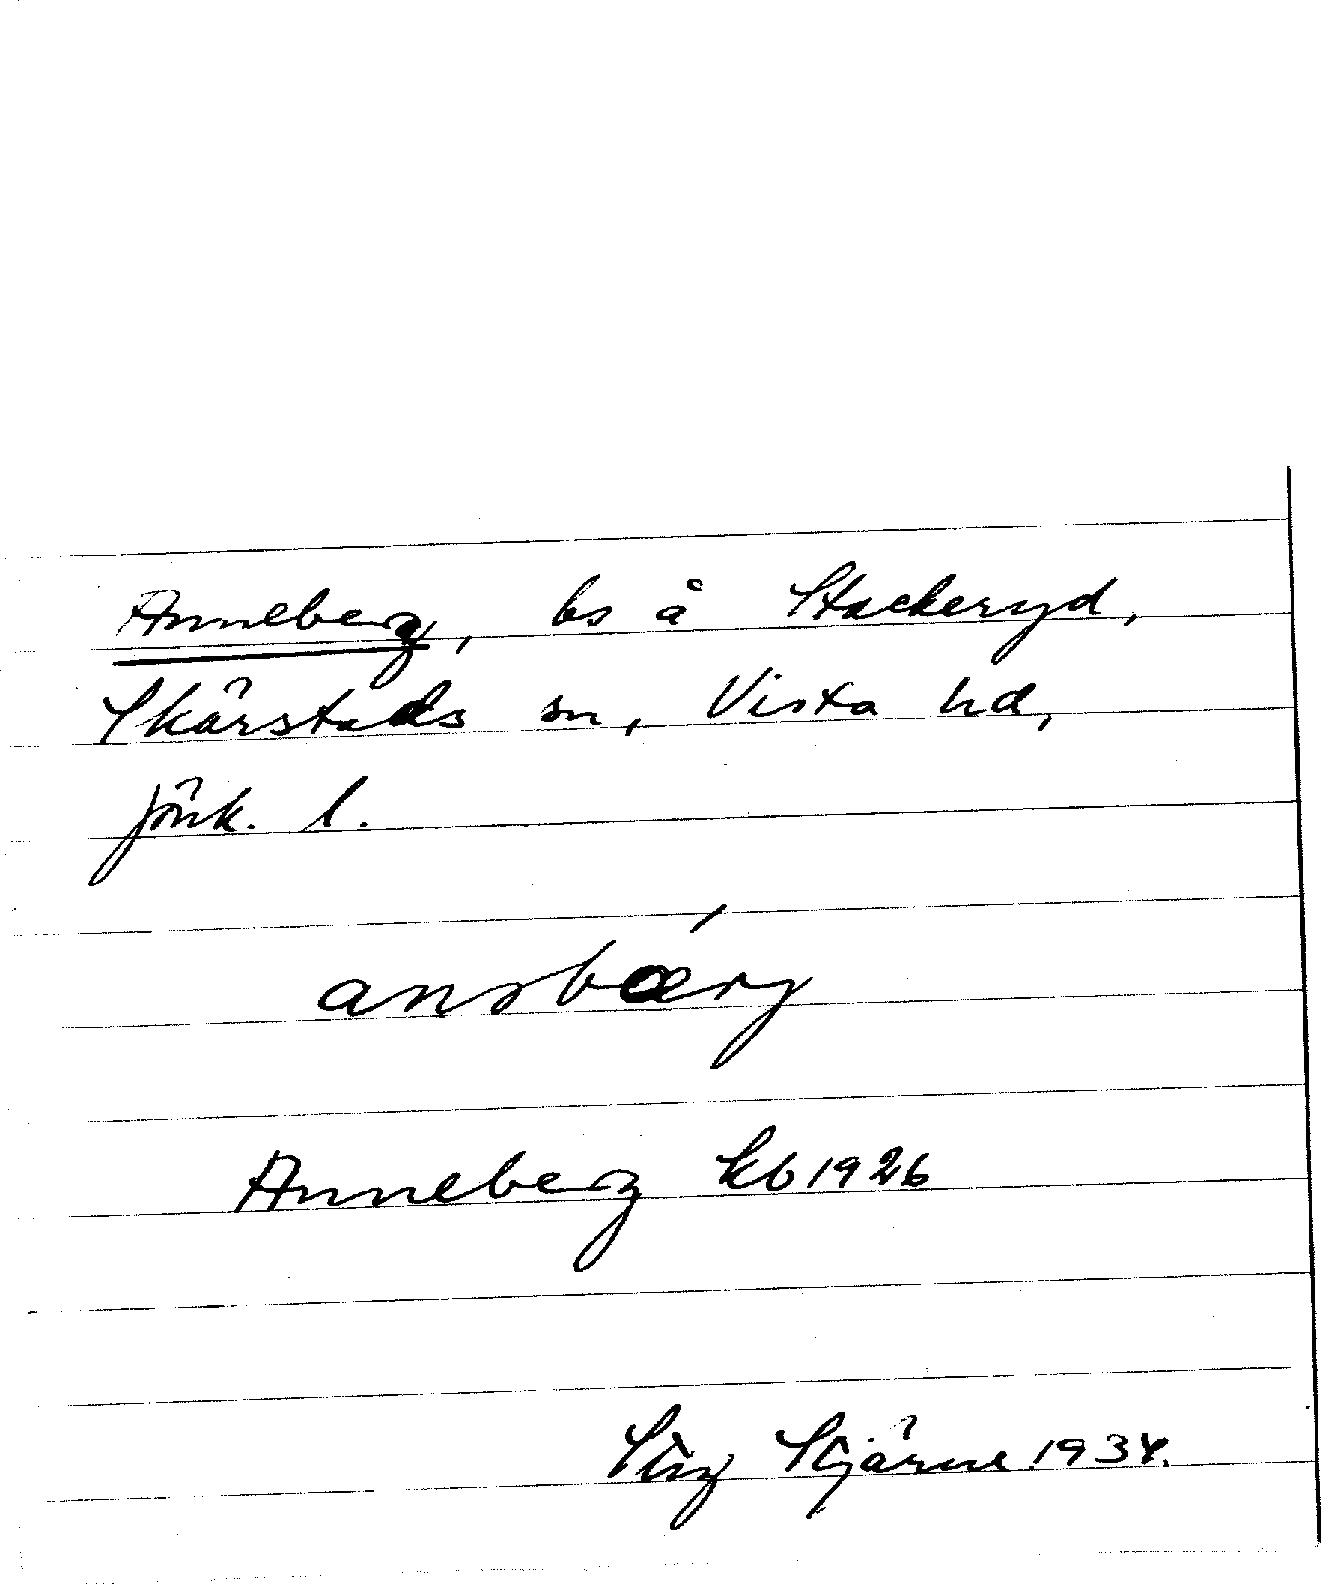 Anneberg, bs å Stackeryd,
Skärstads sn, Vista hd,
Jönk. l.
ansbǽrj
Anneberg kb 1926
Stig Stjärne 1934.